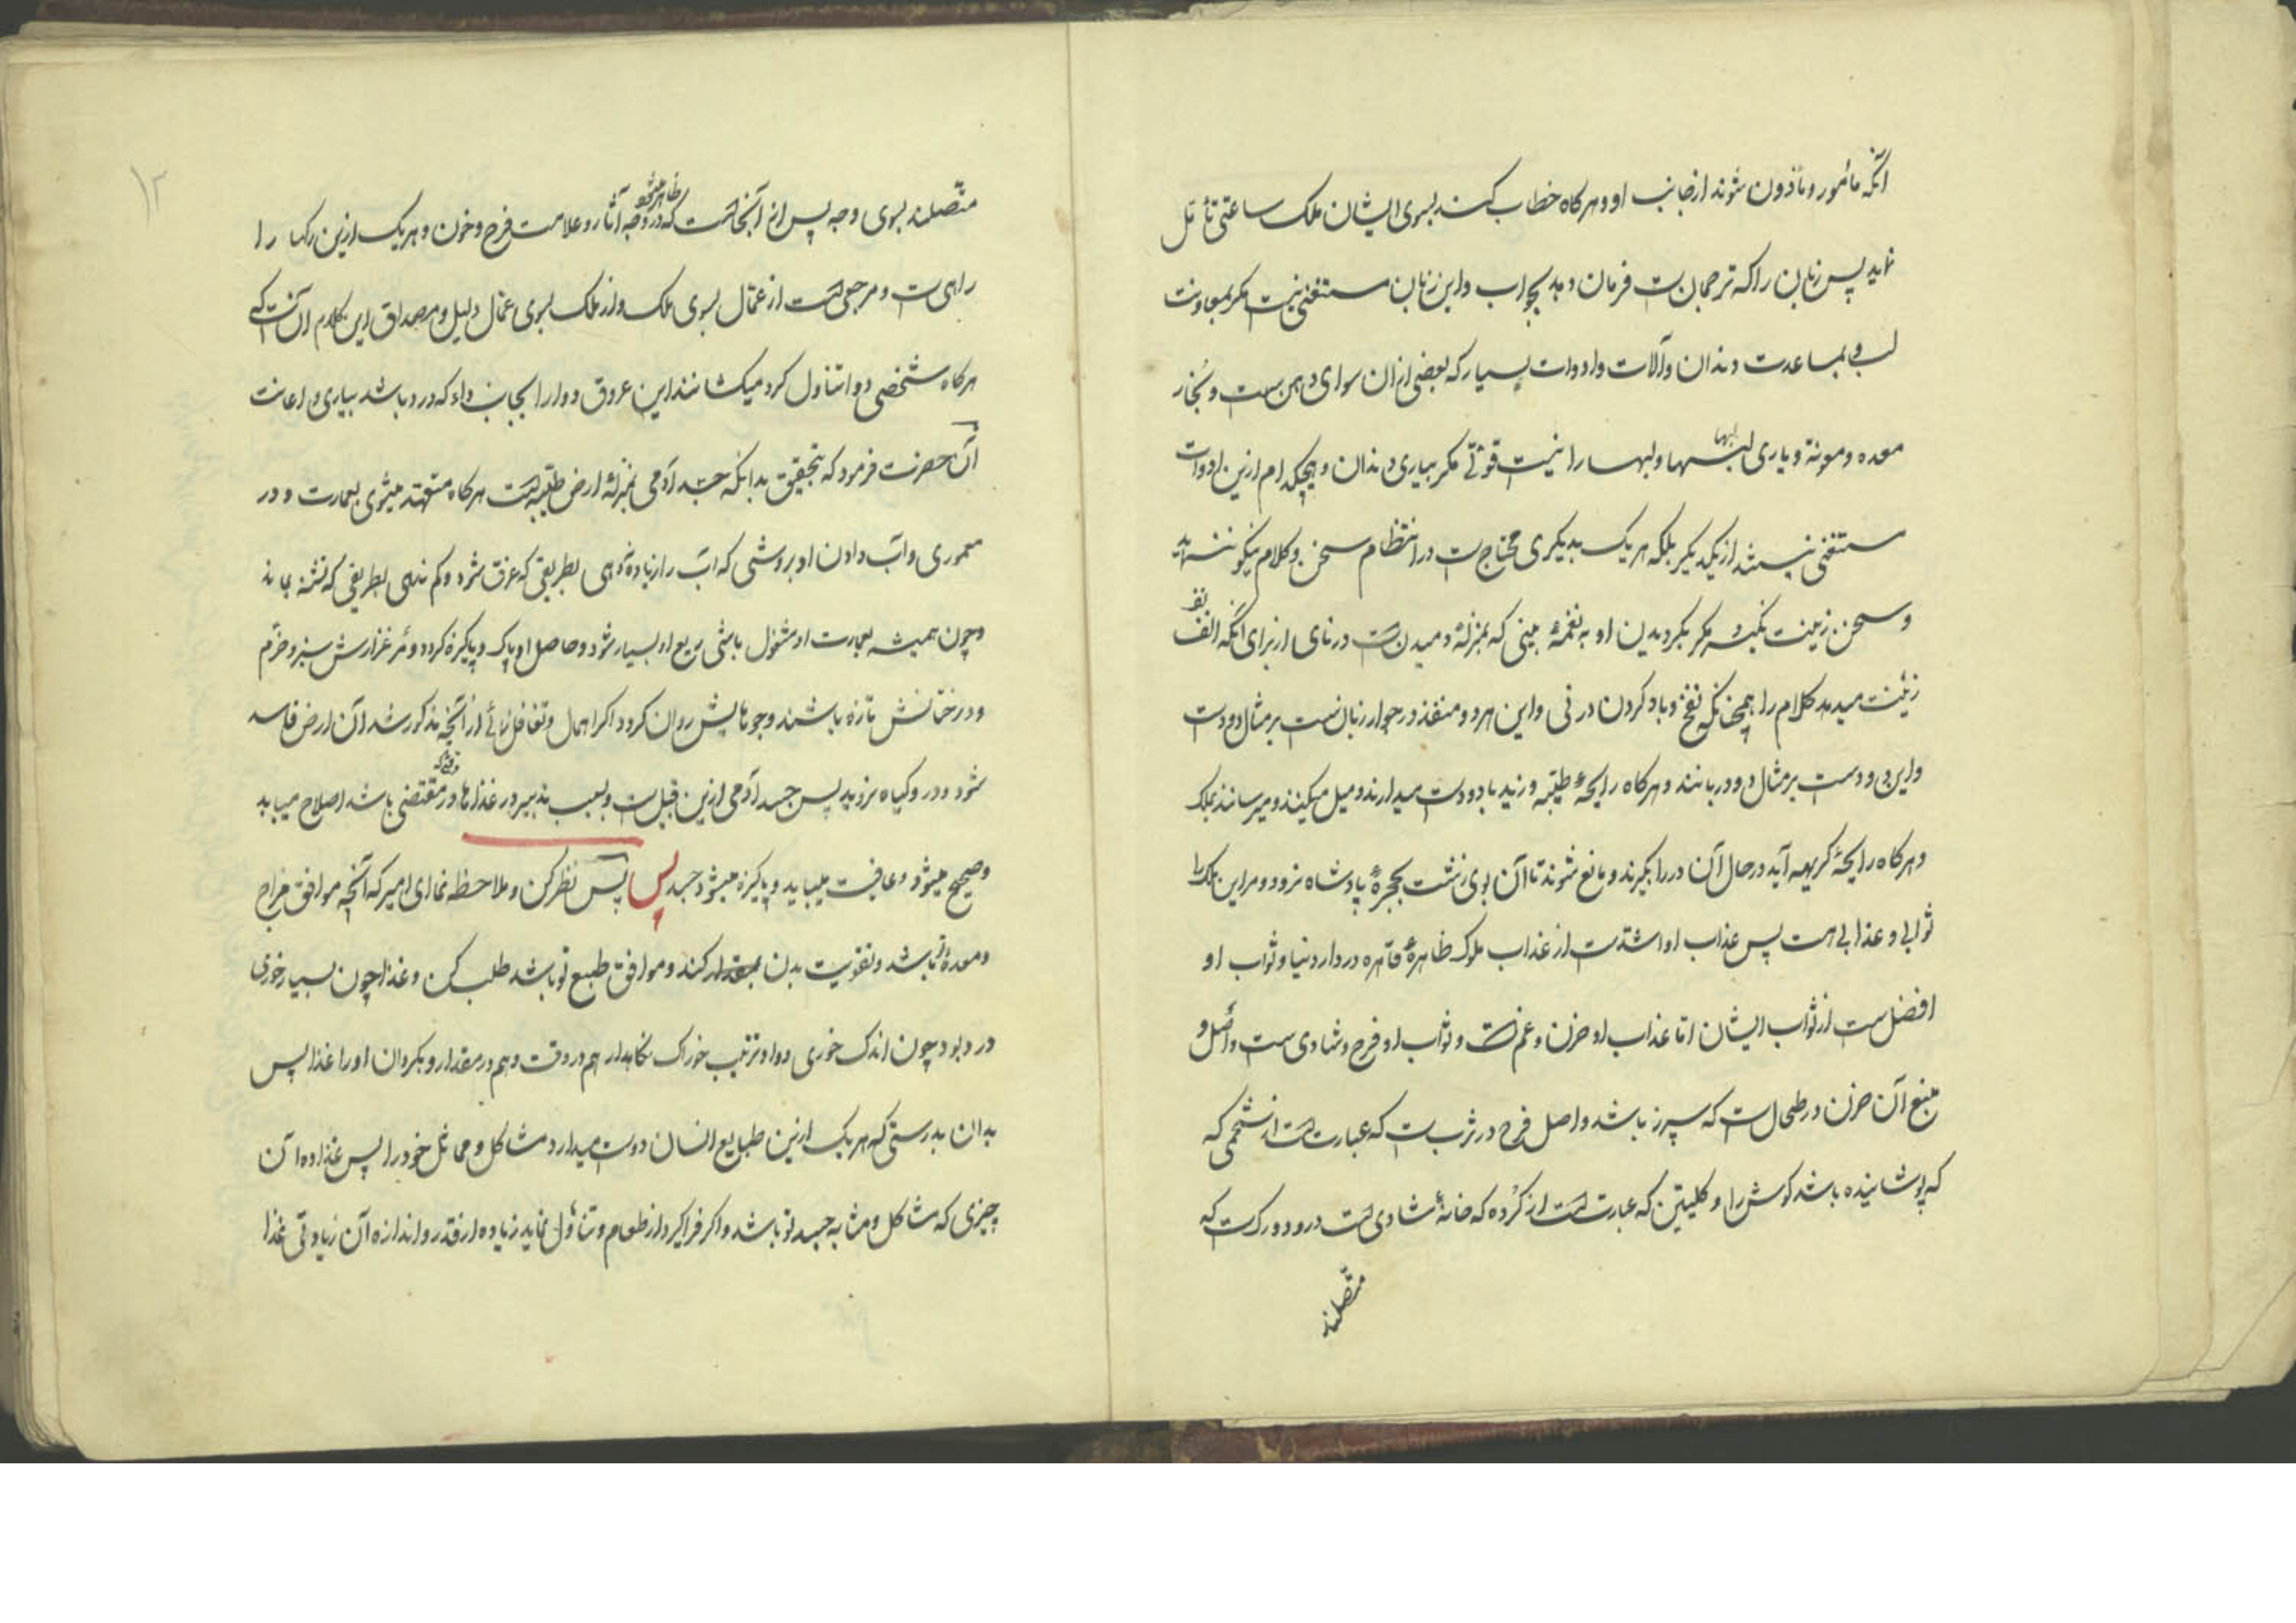 آنکه مأمور و مأذون شوند از جانب او و هرکاه خطاب کند بسوی ایشان ملک ساعتی تأمل
نماید پس زبان را که ترجمان ست فرمان دهد بجواب و این زبان مستغنی نیست مکر بمعاونت
لب و بمساعدت دندان و آلات و ادوات بسیار که بعضی از ان سوای دهن ست و بخار
معده و مونة و یاری لبها و لبها را نیست قوتی مکر بیاری دندان و هیچکدام ازین ادوات
مستغنی نیستند از یکدیکر بلکه هر یک بدیکری محتاج ست در انتظام سخن و کلام نیکو
و سخن زینت نکیرد مکر بکردیدن او به نغمهٔ بینی که بمنزلهٔ دمیدن ست در نای از برای آنکه انف
زینت میدهد کلام را همچنانکه نفخ و باد کردن در نی و این هر دو منفذ در جوار زبان ست بر مثال دو دست
و این دو دست بر مثال دو دربانند و هرکاه رایحهٔ طیبه وزید با دو دست میدارند و میل میکنند و میرسانند بملک
و هرکاه رایحهٔ کریهه آید در حال آن در را بکیرند و مانع شوند تا آن بوی زشت بحجرهٔ پادشاه نرود و مر این ملک را
ثوابی و عذابی هست پس عذاب او اشدست از عذاب ملوک ظاهرهٔ قاهره در دار دنیا و ثواب او
افضل ست از ثواب ایشان اما عذاب او حزن و غم است و ثواب او فرح و شادی ست و اصل و
منبع آن حزن در طحال ست که سپرز باشد و اصل فرح در ثرب ست که عبارت است از شحمی که
که پوشانیده باشد کوش را و کلیتین که عبارت است از کرده که خانهٔ شادی است درو دو رک ست که
متصلند
۱۲
متصلند بسوی وجه پس از آنجاست که در وجه آثار و علامت فرح و حزن ظاهر میشود و هر یک ازین رکها را
راهی ست و مرجعی است از عمّال بسوی ملک و از ملک بسوی عمّال دلیل و مصداق این کلام آن ست که
هرکاه شخصی دوا تناول کرد میکشانند این عروق دوا را بجانب داء که درد باشد بیاری و اعانت
آن حضرت فرمود که بتحقیق بدانکه جسد آدمی بمنزلهٔ ارض طیبه است هرکاه متعهد میشوی بعمارت و در
معموری و آب دادن او بروشی که آب را زیاده ندهی بطریقی که غرق شود و کم ندهی بطریقی که تشنه بماند
و چون همیشه بعمارت او مشغول باشی ریع او بسیار شود و حاصل او پاک و پاکیزه کردد و مرغزارش سبز و خرم
و درختانش تازه باشند و جویهایش روان کردد و اکر اهمال و تغافل نمائی از آنچه مذکور شد آن ارض فاسد
شود و درو کیاه نروید پس جسد آدمی ازین قبیل ست و بسبب تدبیر در غذاها در وقتی که مقتضی باشد اصلاح مییابد
و صحیح میشود و عافیت مییابد و پاکیزه میشود جسد پس پس نظر کن و ملاحظه نمای امیر که آنچه موافق مزاج
و معدهٔ تو باشد و تقویت بدن کند و موافق طبع تو باشد طلب کن و غذا چون بسیار خوری
درد بود چون اندک خوری دوا و ترتیب خوراک نکاهدار هم در وقت و هم در مقدار و بکردان او را غذا پس
بدان بدرستی که هر یک ازین طبایع انسان دوست میدارد مشاکل و مماثل خود را پس غذا ده آن
چیزی که مشاکل و مشابه جسد تو باشد و اکر فرا کیرد از طعام و تناول نماید زیاده از قدر و اندازه آن زیادتی غذا